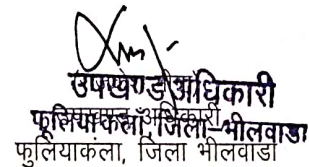 उपखण्ड अधिकारी
फूलियाकलाँ, जिला-भीलवाडा
उपखण्ड अधिकारी
फुलियाकला, जिला भीलवाडा